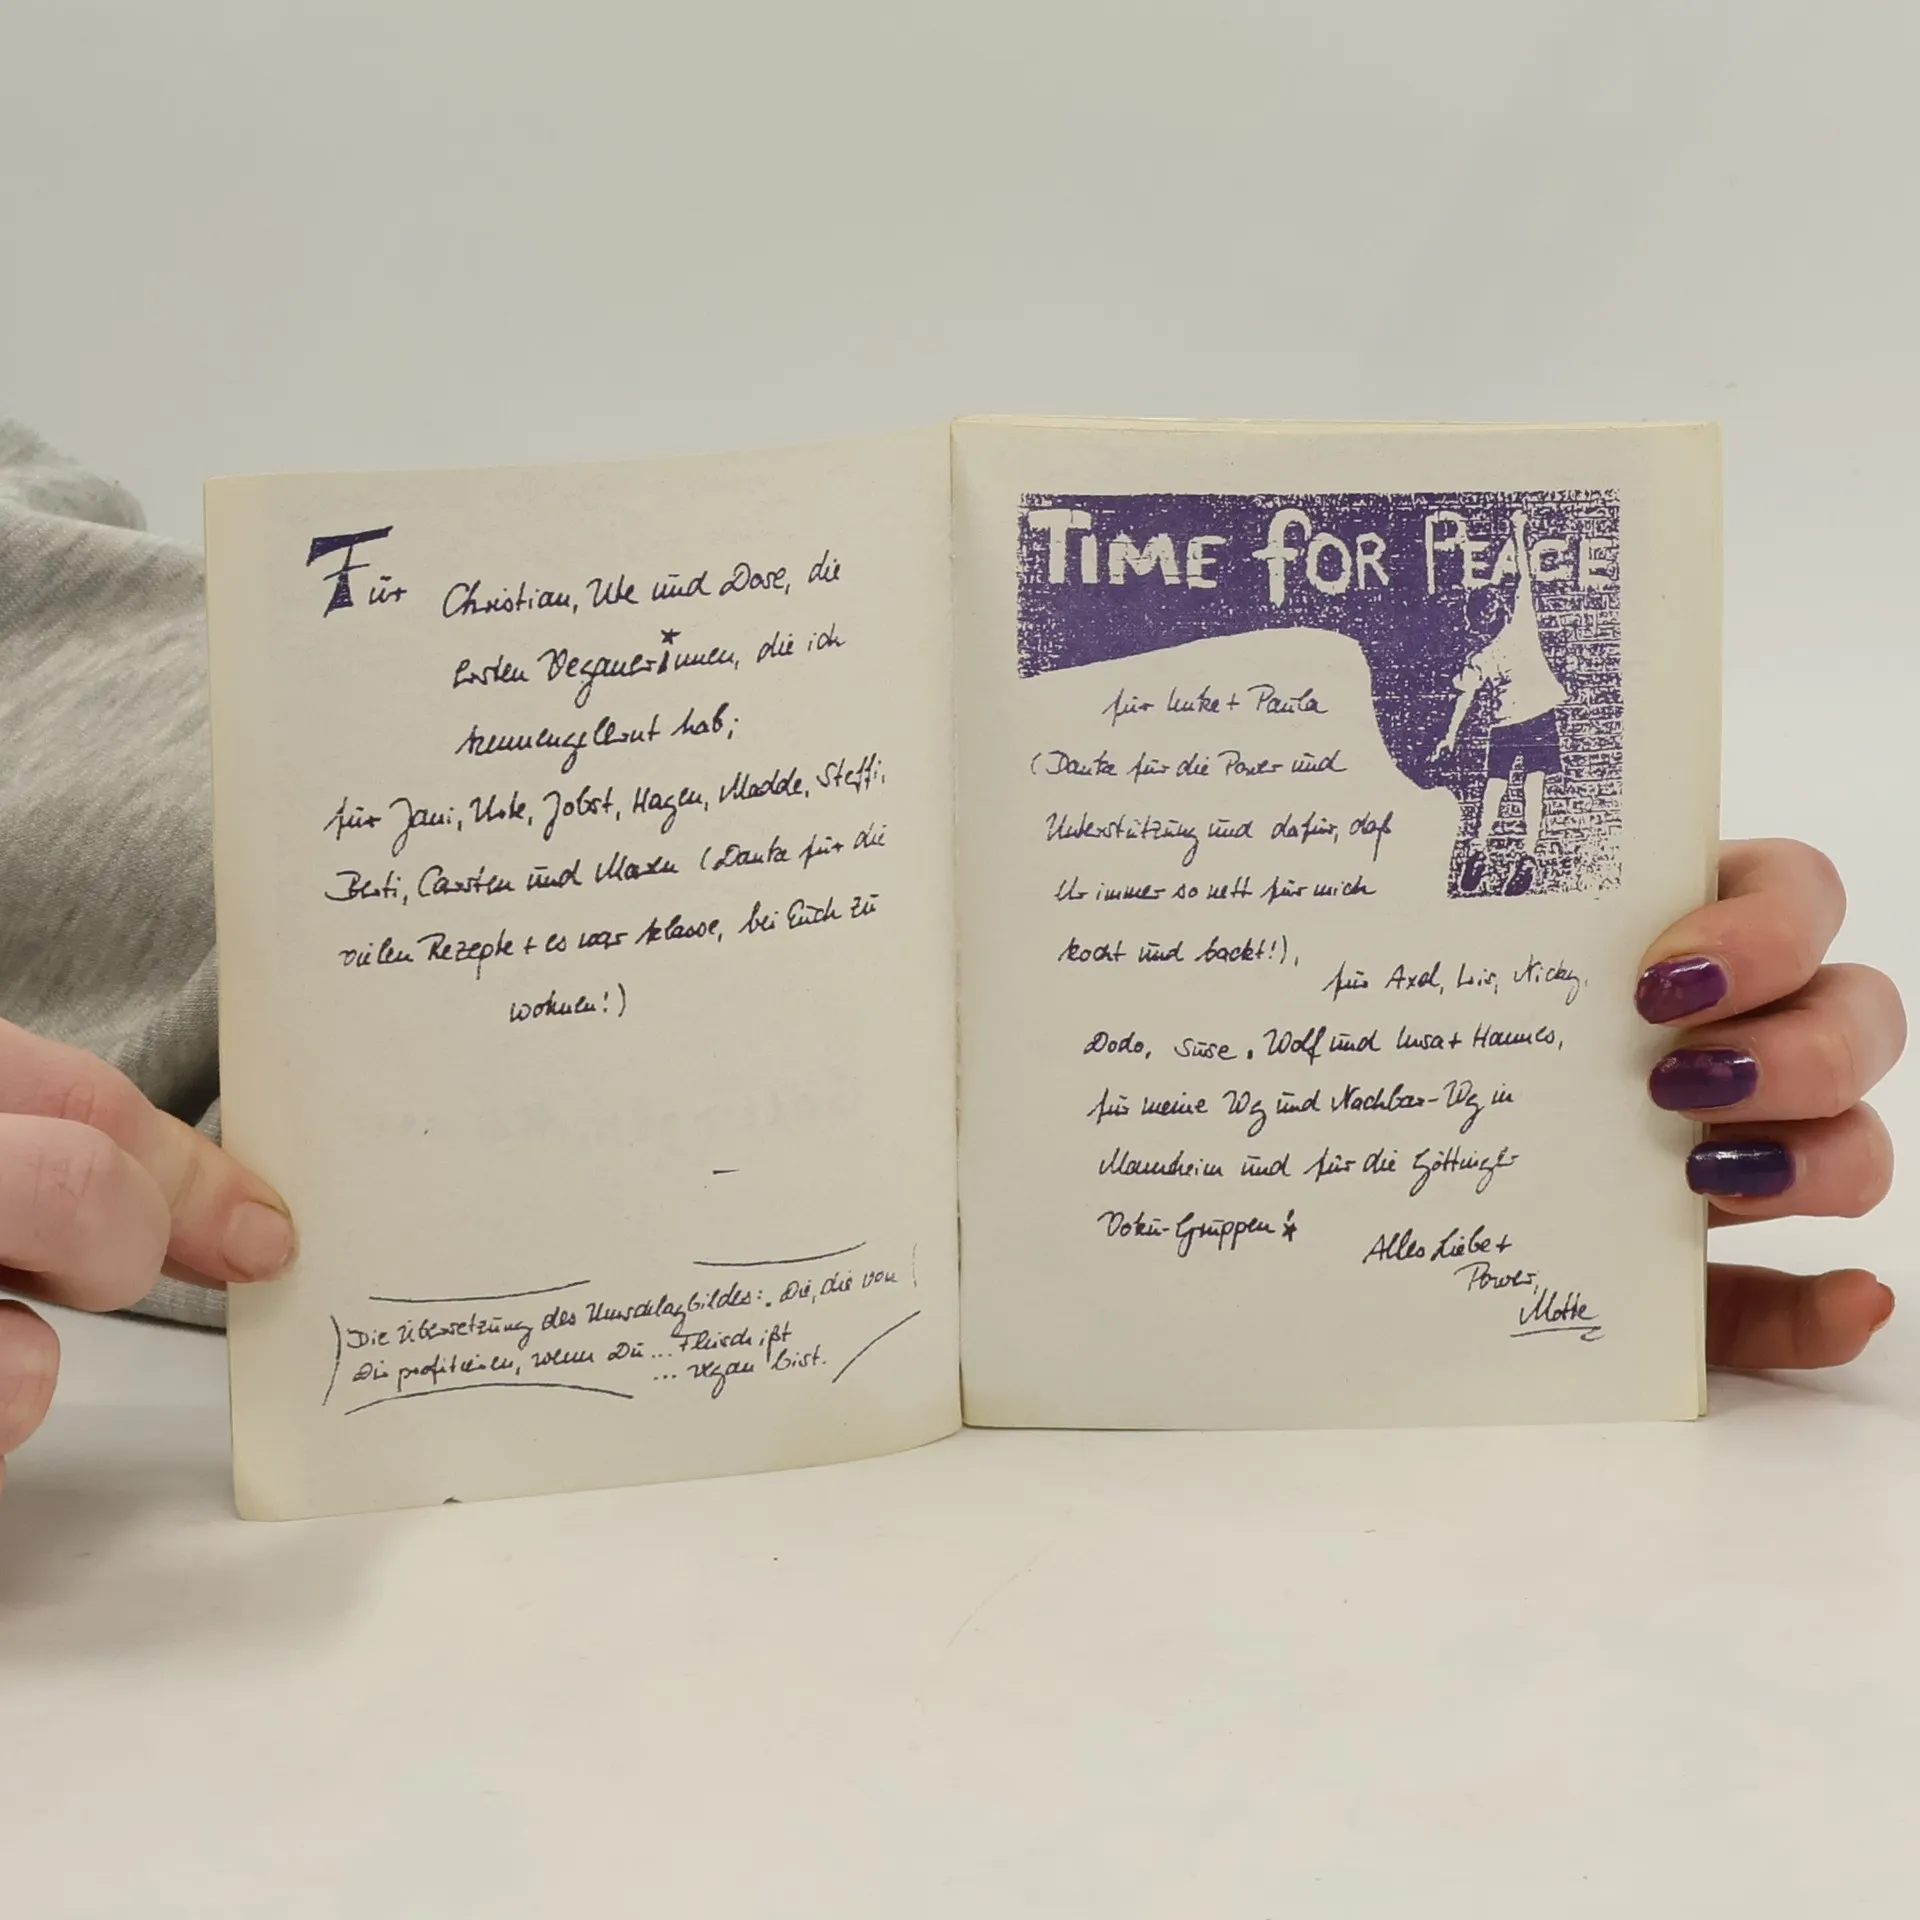 Für Christian, Ute und Dose, die
ersten VeganerInnen, die ich
kennengelernt hab;
für Jani, Ute, Jobst, Hagen, Madde, Steffi,
Berti, Carsten und Maren (Danke für die
vielen Rezepte + es war klasse, bei Euch zu
wohnen!)
Die Übersetzung des Umschlagbildes: „Die, die von
Dir profitieren, wenn Du ... Fleisch ißt
... vegan bist.
TIME FOR PEACE
für Imke + Paula
(Danke für die Power und
Unterstützung und dafür, daß
Ihr immer so nett für mich
kocht und backt!),
für Axel, Nicky,
Dodo, Suse, Wolf und Insa + Hannes,
für meine Wg und Nachbar-Wg in
Mannheim und für die Göttinger
Vokü-Gruppen!
Alles Liebe +
Power,
Motte